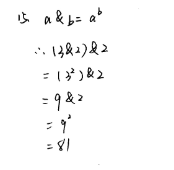 15. a & b = a^b
∴ (3 & 2) & 2
= (3²) & 2
= 9 & 2
= 9²
= 81